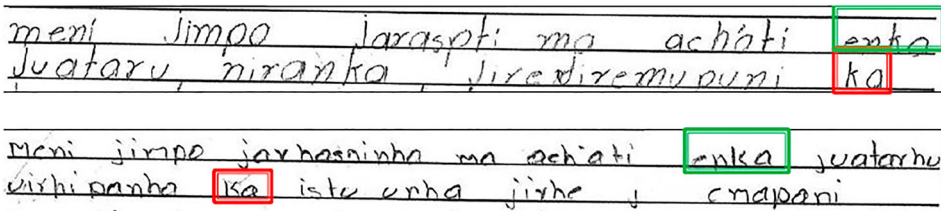 meni jimpo jaraspti ma achati enka
juataru niranka jirexiremupuni ka
Meni jimpo jarhasninha ma achati enka juatarhu
uirhipanha ka istu urha jirhe j cnapani